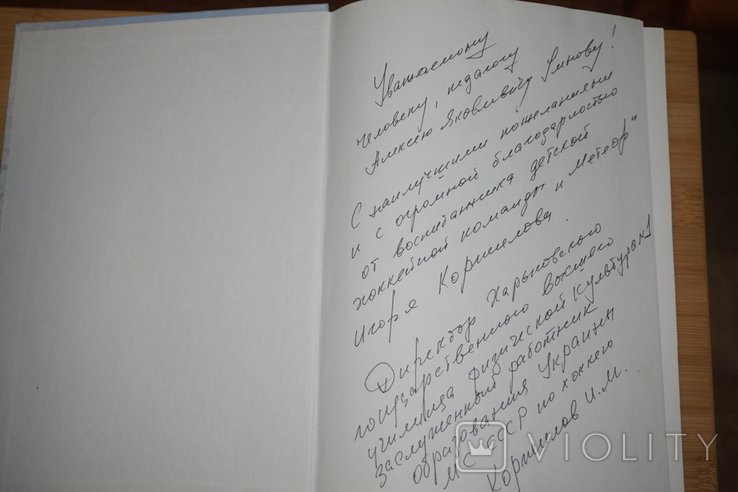 Уважаемому
человеку, педагогу
Алексею Яковлевичу Умнову!
С наилучшими пожеланиями
и с огромной благодарностью
от воспитанника детской
хоккейной команды „Метеор"
Игоря Коршелова.
Директор Харьковского
государственного высшего
училища физической культуры №1
заслуженный работник
образования Украины
МС СССР по хоккею
Коршелов И.М.
VIOLITY